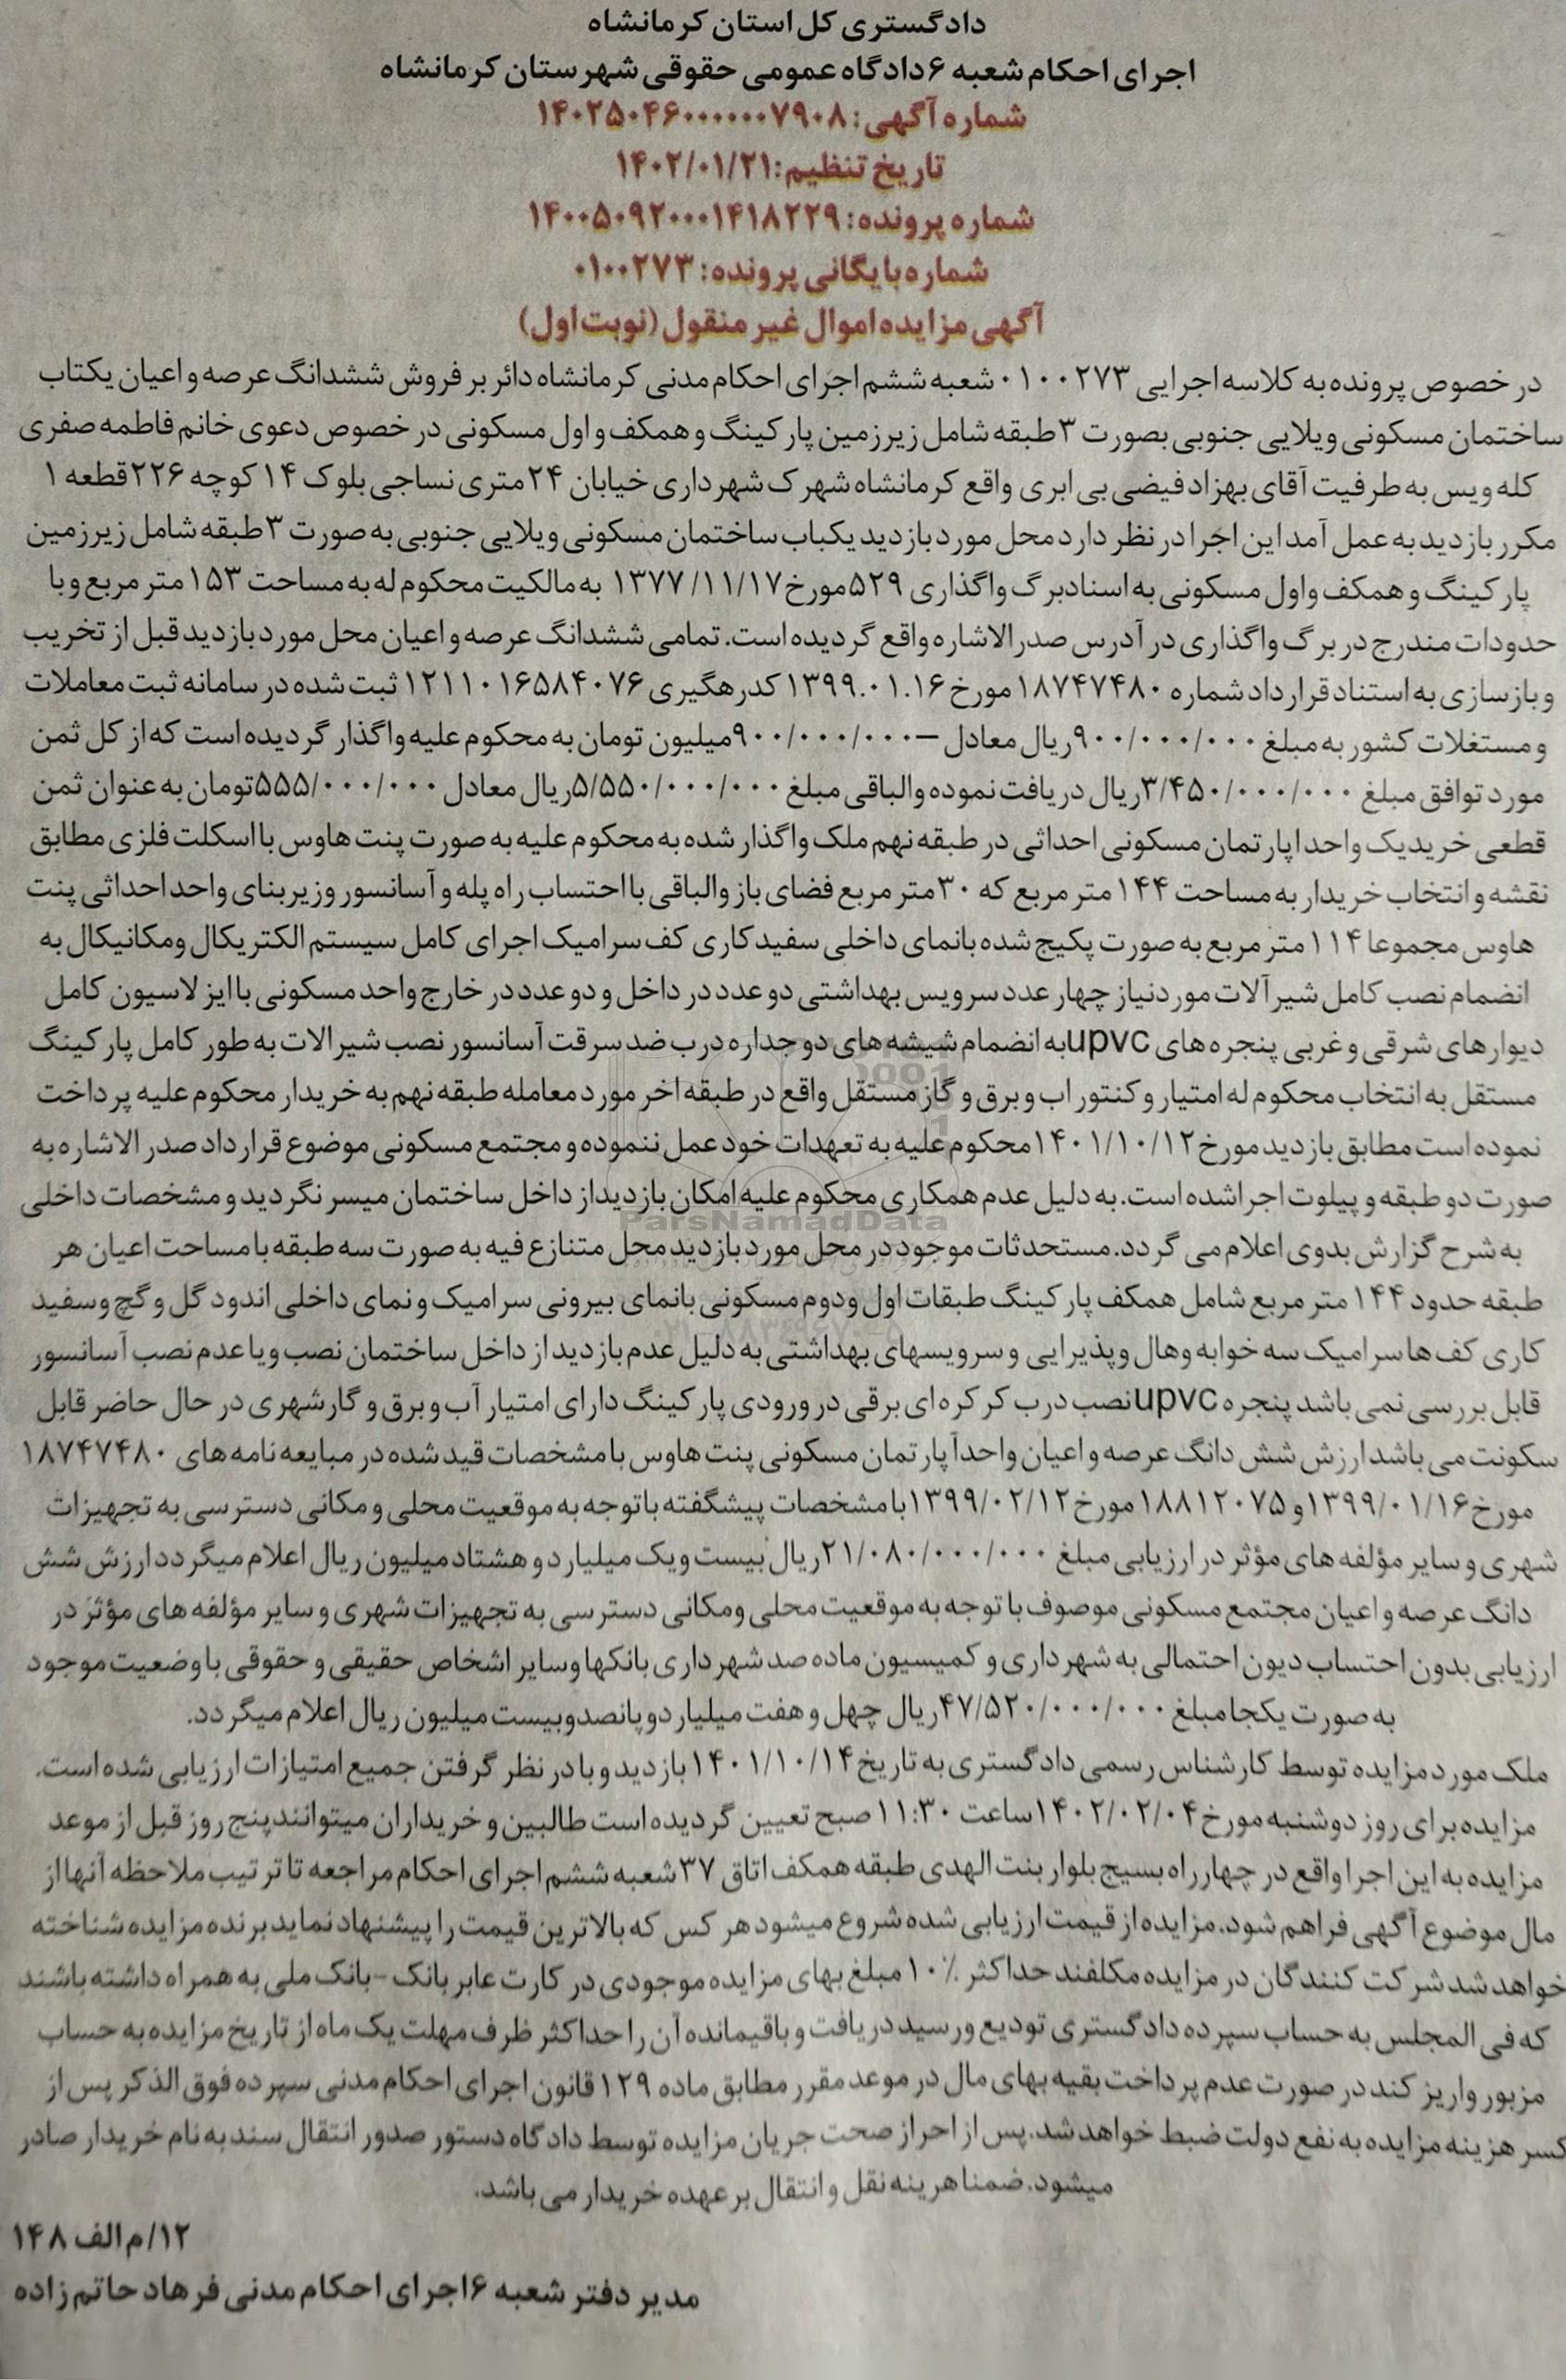 دادگستری کل استان کرمانشاه
اجرای احکام شعبه ۶ دادگاه عمومی حقوقی شهرستان کرمانشاه
شماره آگهی: ۱۴۰۲۵۰۴۶۰۰۰۰۰۰۷۹۰۸
تاریخ تنظیم: ۱۴۰۲/۰۱/۲۱
شماره پرونده: ۱۴۰۰۵۰۹۲۰۰۰۱۴۱۸۲۲۹
شماره بایگانی پرونده: ۰۱۰۰۲۷۳
آگهی مزایده اموال غیر منقول (نوبت اول)
در خصوص پرونده به کلاسه اجرایی ۰۱۰۰۲۷۳ شعبه ششم اجرای احکام مدنی کرمانشاه دائر بر فروش ششدانگ عرصه و اعیان یکتاب
ساختمان مسکونی ویلایی جنوبی بصورت ۳ طبقه شامل زیرزمین پارکینگ و همکف و اول مسکونی در خصوص دعوی خانم فاطمه صفری
کله ویس به طرفیت آقای بهزاد فیضی بی ابری واقع کرمانشاه شهرک شهرداری خیابان ۲۴ متری نساجی بلوک ۱۴ کوچه ۲۲۶ قطعه ۱
مکرر بازدید به عمل آمد این اجرا در نظر دارد محل مورد بازدید یکباب ساختمان مسکونی ویلایی جنوبی به صورت ۳ طبقه شامل زیرزمین
پارکینگ و همکف و اول مسکونی به اسناد برگ واگذاری ۵۲۹ مورخ ۱۳۷۷/۱۱/۱۷ به مالکیت محکوم له به مساحت ۱۵۳ متر مربع و با
حدودات مندرج در برگ واگذاری در آدرس صدرالاشاره واقع گردیده است. تمامی ششدانگ عرصه و اعیان محل مورد بازدید قبل از تخریب
و بازسازی به استناد قرارداد شماره ۱۸۷۴۷۴۸۰ مورخ ۱۳۹۹.۰۱.۱۶ کدرهگیری ۱۲۱۱۰۱۶۵۸۴۰۷۶ ثبت شده در سامانه ثبت معاملات
و مستغلات کشور به مبلغ ۹۰۰/۰۰۰/۰۰۰ ریال معادل –۹۰۰/۰۰۰/۰۰۰ میلیون تومان به محکوم علیه واگذار گردیده است که از کل ثمن
مورد توافق مبلغ ۳/۴۵۰/۰۰۰/۰۰۰ ریال دریافت نموده والباقی مبلغ ۵/۵۵۰/۰۰۰/۰۰۰ ریال معادل ۵۵۵/۰۰۰/۰۰۰ تومان به عنوان ثمن
قطعی خرید یک واحد اپارتمان مسکونی احداثی در طبقه نهم ملک واگذار شده به محکوم علیه به صورت پنت هاوس با اسکلت فلزی مطابق
نقشه و انتخاب خریدار به مساحت ۱۴۴ متر مربع که ۳۰ متر مربع فضای باز والباقی با احتساب راه پله و آسانسور و زیربنای واحد احداثی پنت
هاوس مجموعا ۱۱۴ متر مربع به صورت پکیج شده بانمای داخلی سفید کاری کف سرامیک اجرای کامل سیستم الکتریکال و مکانیکال به
انضمام نصب کامل شیرآلات مورد نیاز چهار عدد سرویس بهداشتی دو عدد در داخل و دو عدد در خارج واحد مسکونی با ایزلاسیون کامل
دیوارهای شرقی و غربی پنجره های upvc به انضمام شیشه های دو جداره درب ضد سرقت آسانسور نصب شیرالات به طور کامل پارکینگ
مستقل به انتخاب محکوم له امتیاز و کنتور اب و برق و گاز مستقل واقع در طبقه اخر مورد معامله طبقه نهم به خریدار محکوم علیه پرداخت
نموده است مطابق بازدید مورخ ۱۴۰۱/۱۰/۱۲ محکوم علیه به تعهدات خود عمل ننموده و مجتمع مسکونی موضوع قرارداد صدر الاشاره به
صورت دو طبقه و پیلوت اجرا شده است. به دلیل عدم همکاری محکوم علیه امکان بازدید از داخل ساختمان میسر نگردید و مشخصات داخلی
به شرح گزارش بدوی اعلام می گردد. مستحدثات موجود در محل مورد بازدید محل متنازع فیه به صورت سه طبقه با مساحت اعیان هر
طبقه حدود ۱۴۴ متر مربع شامل همکف پارکینگ طبقات اول و دوم مسکونی بانمای بیرونی سرامیک و نمای داخلی اندود گل و گچ و سفید
کاری کف ها سرامیک سه خوابه و هال و پذیرایی و سرویسهای بهداشتی به دلیل عدم بازدید از داخل ساختمان نصب و یا عدم نصب آسانسور
قابل بررسی نمی باشد پنجره upvc نصب درب کرکره ای برقی در ورودی پارکینگ دارای امتیاز آب و برق و گاز شهری در حال حاضر قابل
سکونت می باشد ارزش شش دانگ عرصه و اعیان واحد آپارتمان مسکونی پنت هاوس با مشخصات قید شده در مبایعه نامه های ۱۸۷۴۷۴۸۰
مورخ ۱۳۹۹/۰۱/۱۶ و ۱۸۸۱۲۰۷۵ مورخ ۱۳۹۹/۰۲/۱۲ با مشخصات پیشگفته با توجه به موقعیت محلی و مکانی دسترسی به تجهیزات
شهری و سایر مؤلفه های مؤثر در ارزیابی مبلغ ۲۱/۰۸۰/۰۰۰/۰۰۰ ریال بیست و یک میلیارد و هشتاد میلیون ریال اعلام میگردد ارزش شش
دانگ عرصه و اعیان مجتمع مسکونی موصوف با توجه به موقعیت محلی و مکانی دسترسی به تجهیزات شهری و سایر مؤلفه های مؤثر در
ارزیابی بدون احتساب دیون احتمالی به شهرداری و کمیسیون ماده صد شهرداری بانکها و سایر اشخاص حقیقی و حقوقی با وضعیت موجود
به صورت یکجا مبلغ ۴۷/۵۲۰/۰۰۰/۰۰۰ ریال چهل و هفت میلیارد و پانصد و بیست میلیون ریال اعلام میگردد.
ملک مورد مزایده توسط کارشناس رسمی دادگستری به تاریخ ۱۴۰۱/۱۰/۱۴ بازدید و با در نظر گرفتن جمیع امتیازات ارزیابی شده است.
مزایده برای روز دوشنبه مورخ ۱۴۰۲/۰۲/۰۴ ساعت ۱۱:۳۰ صبح تعیین گردیده است طالبین و خریداران میتوانند پنج روز قبل از موعد
مزایده به این اجرا واقع در چهارراه بسیج بلوار بنت الهدی طبقه همکف اتاق ۳۷ شعبه ششم اجرای احکام مراجعه تا ترتیب ملاحظه آنها از
مال موضوع آگهی فراهم شود. مزایده از قیمت ارزیابی شده شروع میشود هر کس که بالاترین قیمت را پیشنهاد نماید برنده مزایده شناخته
خواهد شد شرکت کنندگان در مزایده مکلفند حداکثر ۱۰٪ مبلغ بهای مزایده موجودی در کارت عابر بانک -بانک ملی به همراه داشته باشند
که فی المجلس به حساب سپرده دادگستری تودیع و رسید دریافت و باقیمانده آن را حداکثر ظرف مهلت یک ماه از تاریخ مزایده به حساب
مزبور واریز کند در صورت عدم پرداخت بقیه بهای مال در موعد مقرر مطابق ماده ۱۲۹ قانون اجرای احکام مدنی سپرده فوق الذکر پس از
کسر هزینه مزایده به نفع دولت ضبط خواهد شد. پس از احراز صحت جریان مزایده توسط دادگاه دستور صدور انتقال سند به نام خریدار صادر
میشود. ضمنا هرینه نقل و انتقال بر عهده خریدار می باشد.
۱۲/م الف ۱۴۸
مدیر دفتر شعبه ۶ اجرای احکام مدنی فرهاد حاتم زاده
ParsNamadData